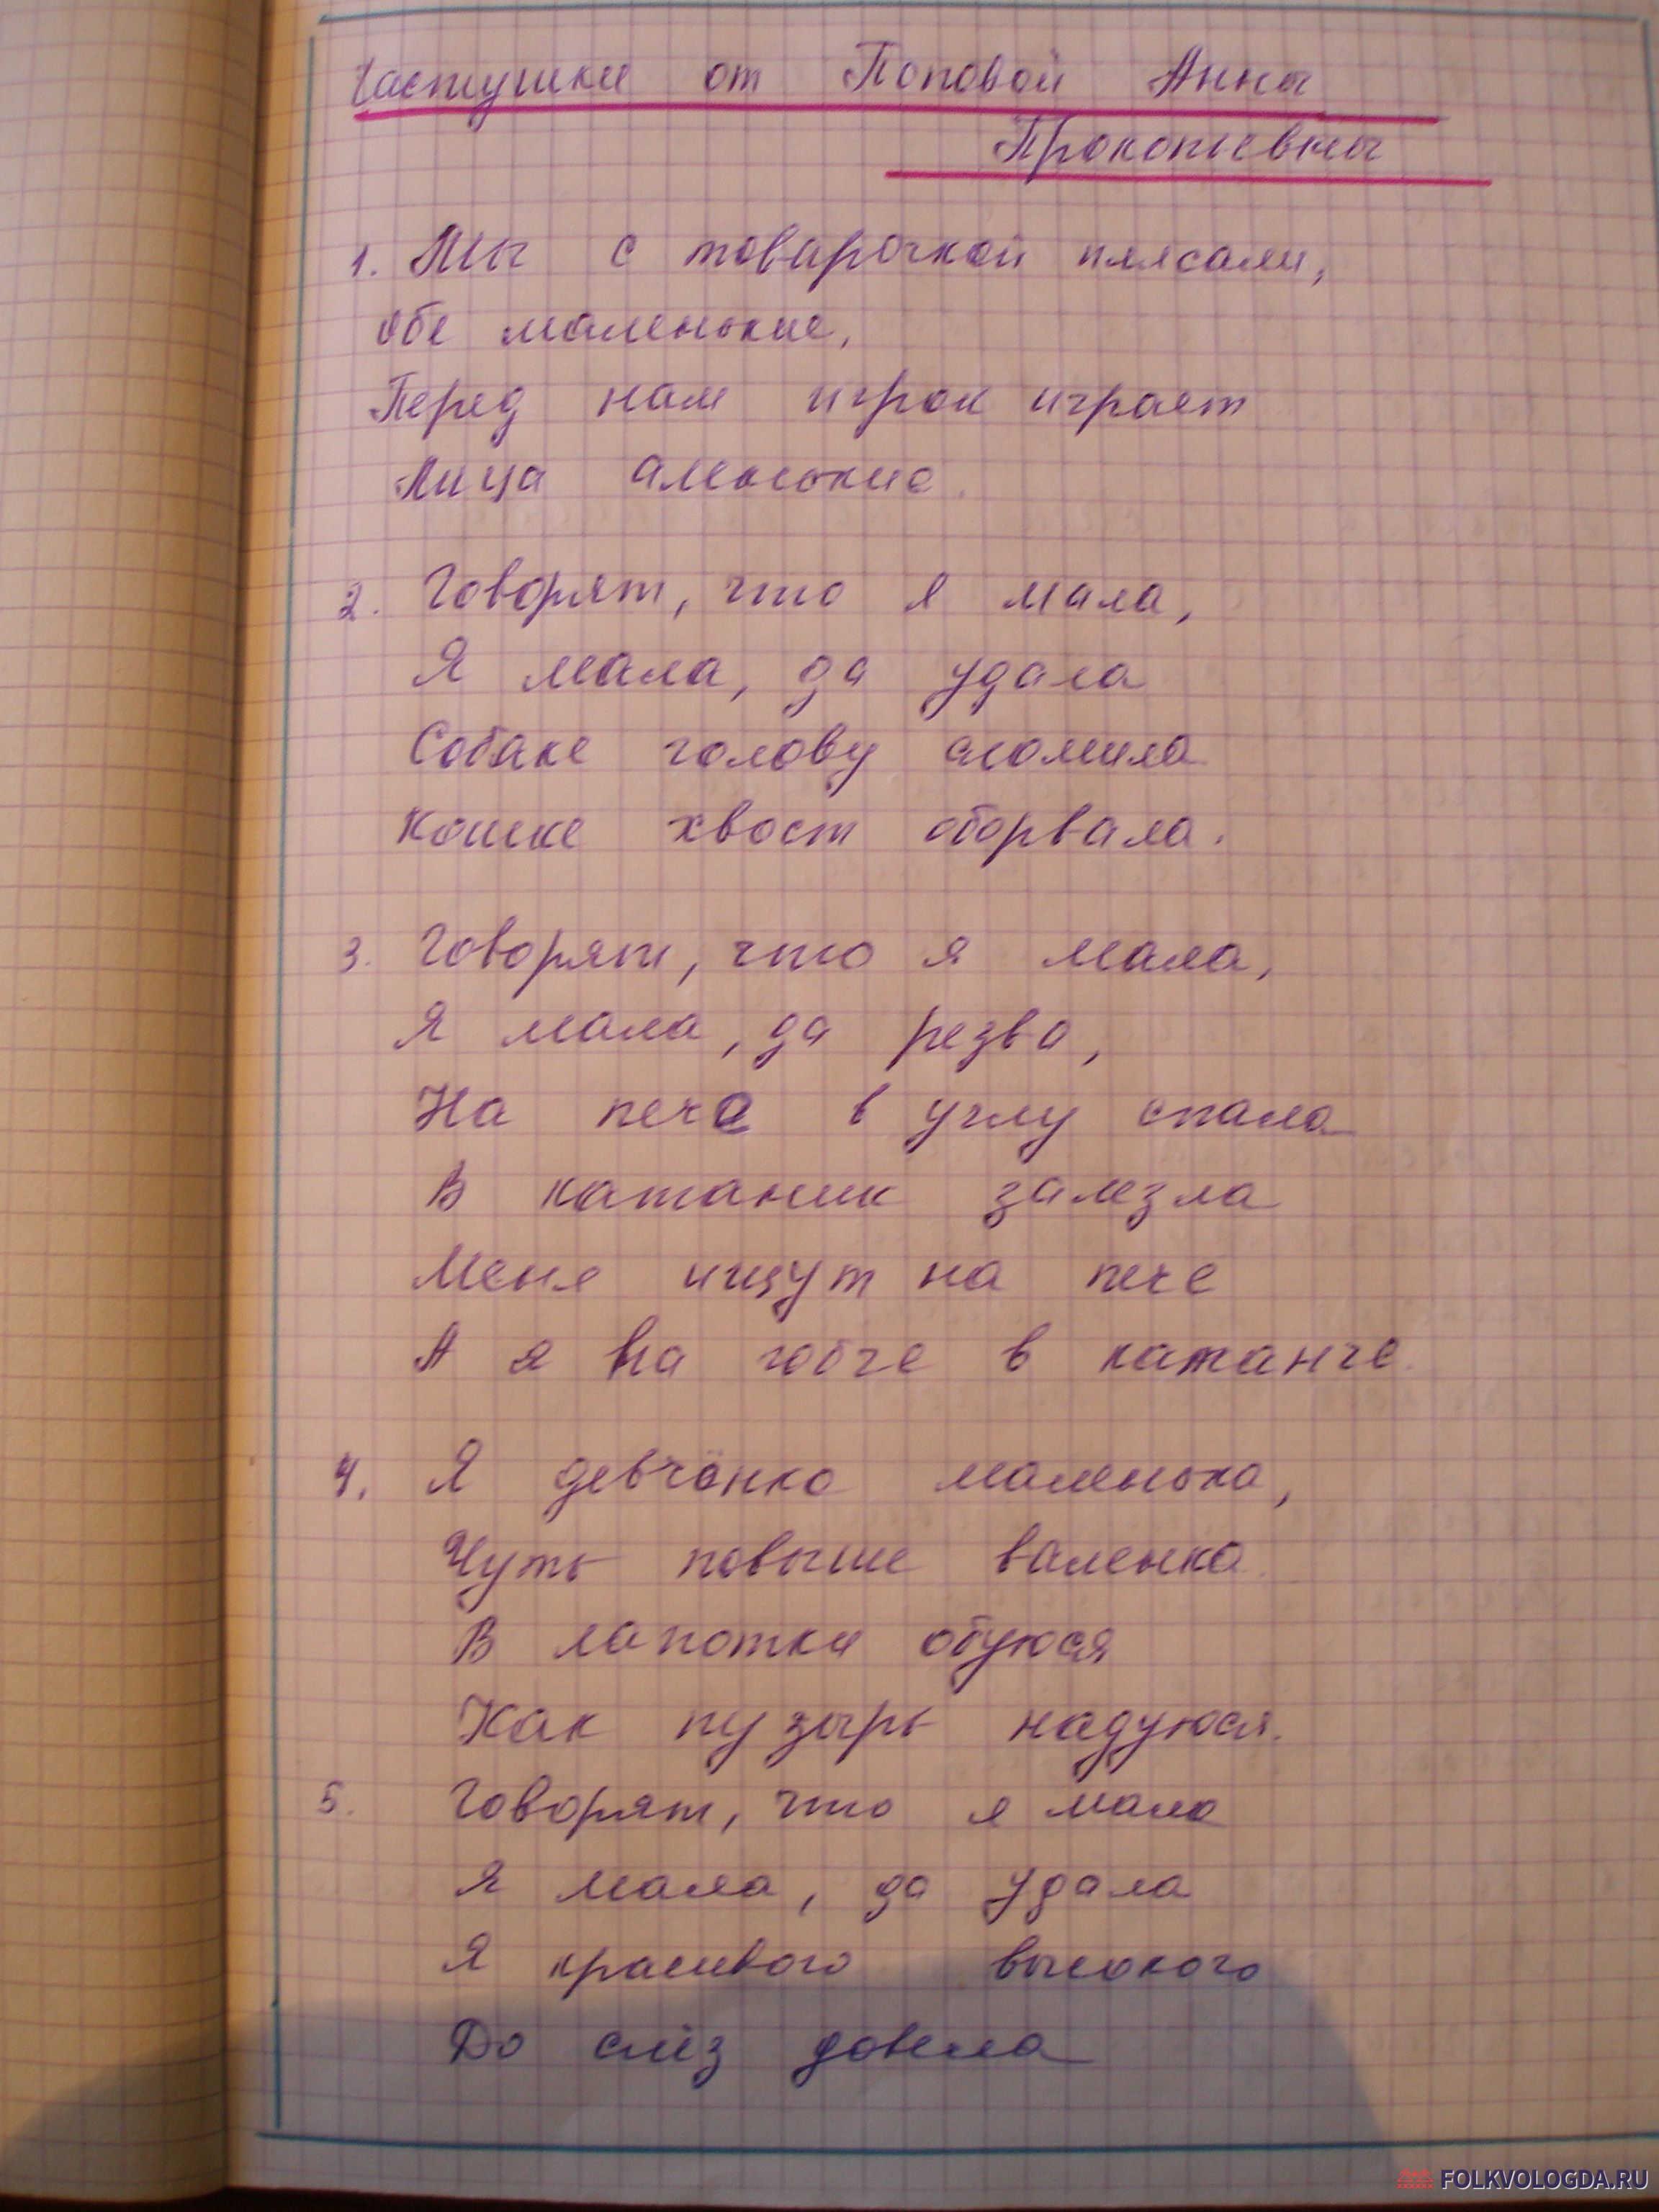 Частушки от Поповой Анны
Прокопьевны
1. Мы с товарочкой плясали,
Обе маленькие,
Перед нам игрок играет
Лица аленькие.
2. Говорят, что я мала,
Я мала, да удала
Собаке голову сломила
Кошке хвост оборвала.
3. Говорят, что я мала,
Я мала, да резва,
На пече в углу спала
В катаник залезла
Меня ищут на пече
А я на гобче в катанче.
4. Я девчёнка маленька,
Чуть повыше валенка.
В лапотки обуюся
Как пузырь надуюся.
5. Говорят, что я мала
Я мала, да удала
Я красивого высокого
До слёз довела
FOLKVOLOGDA.RU